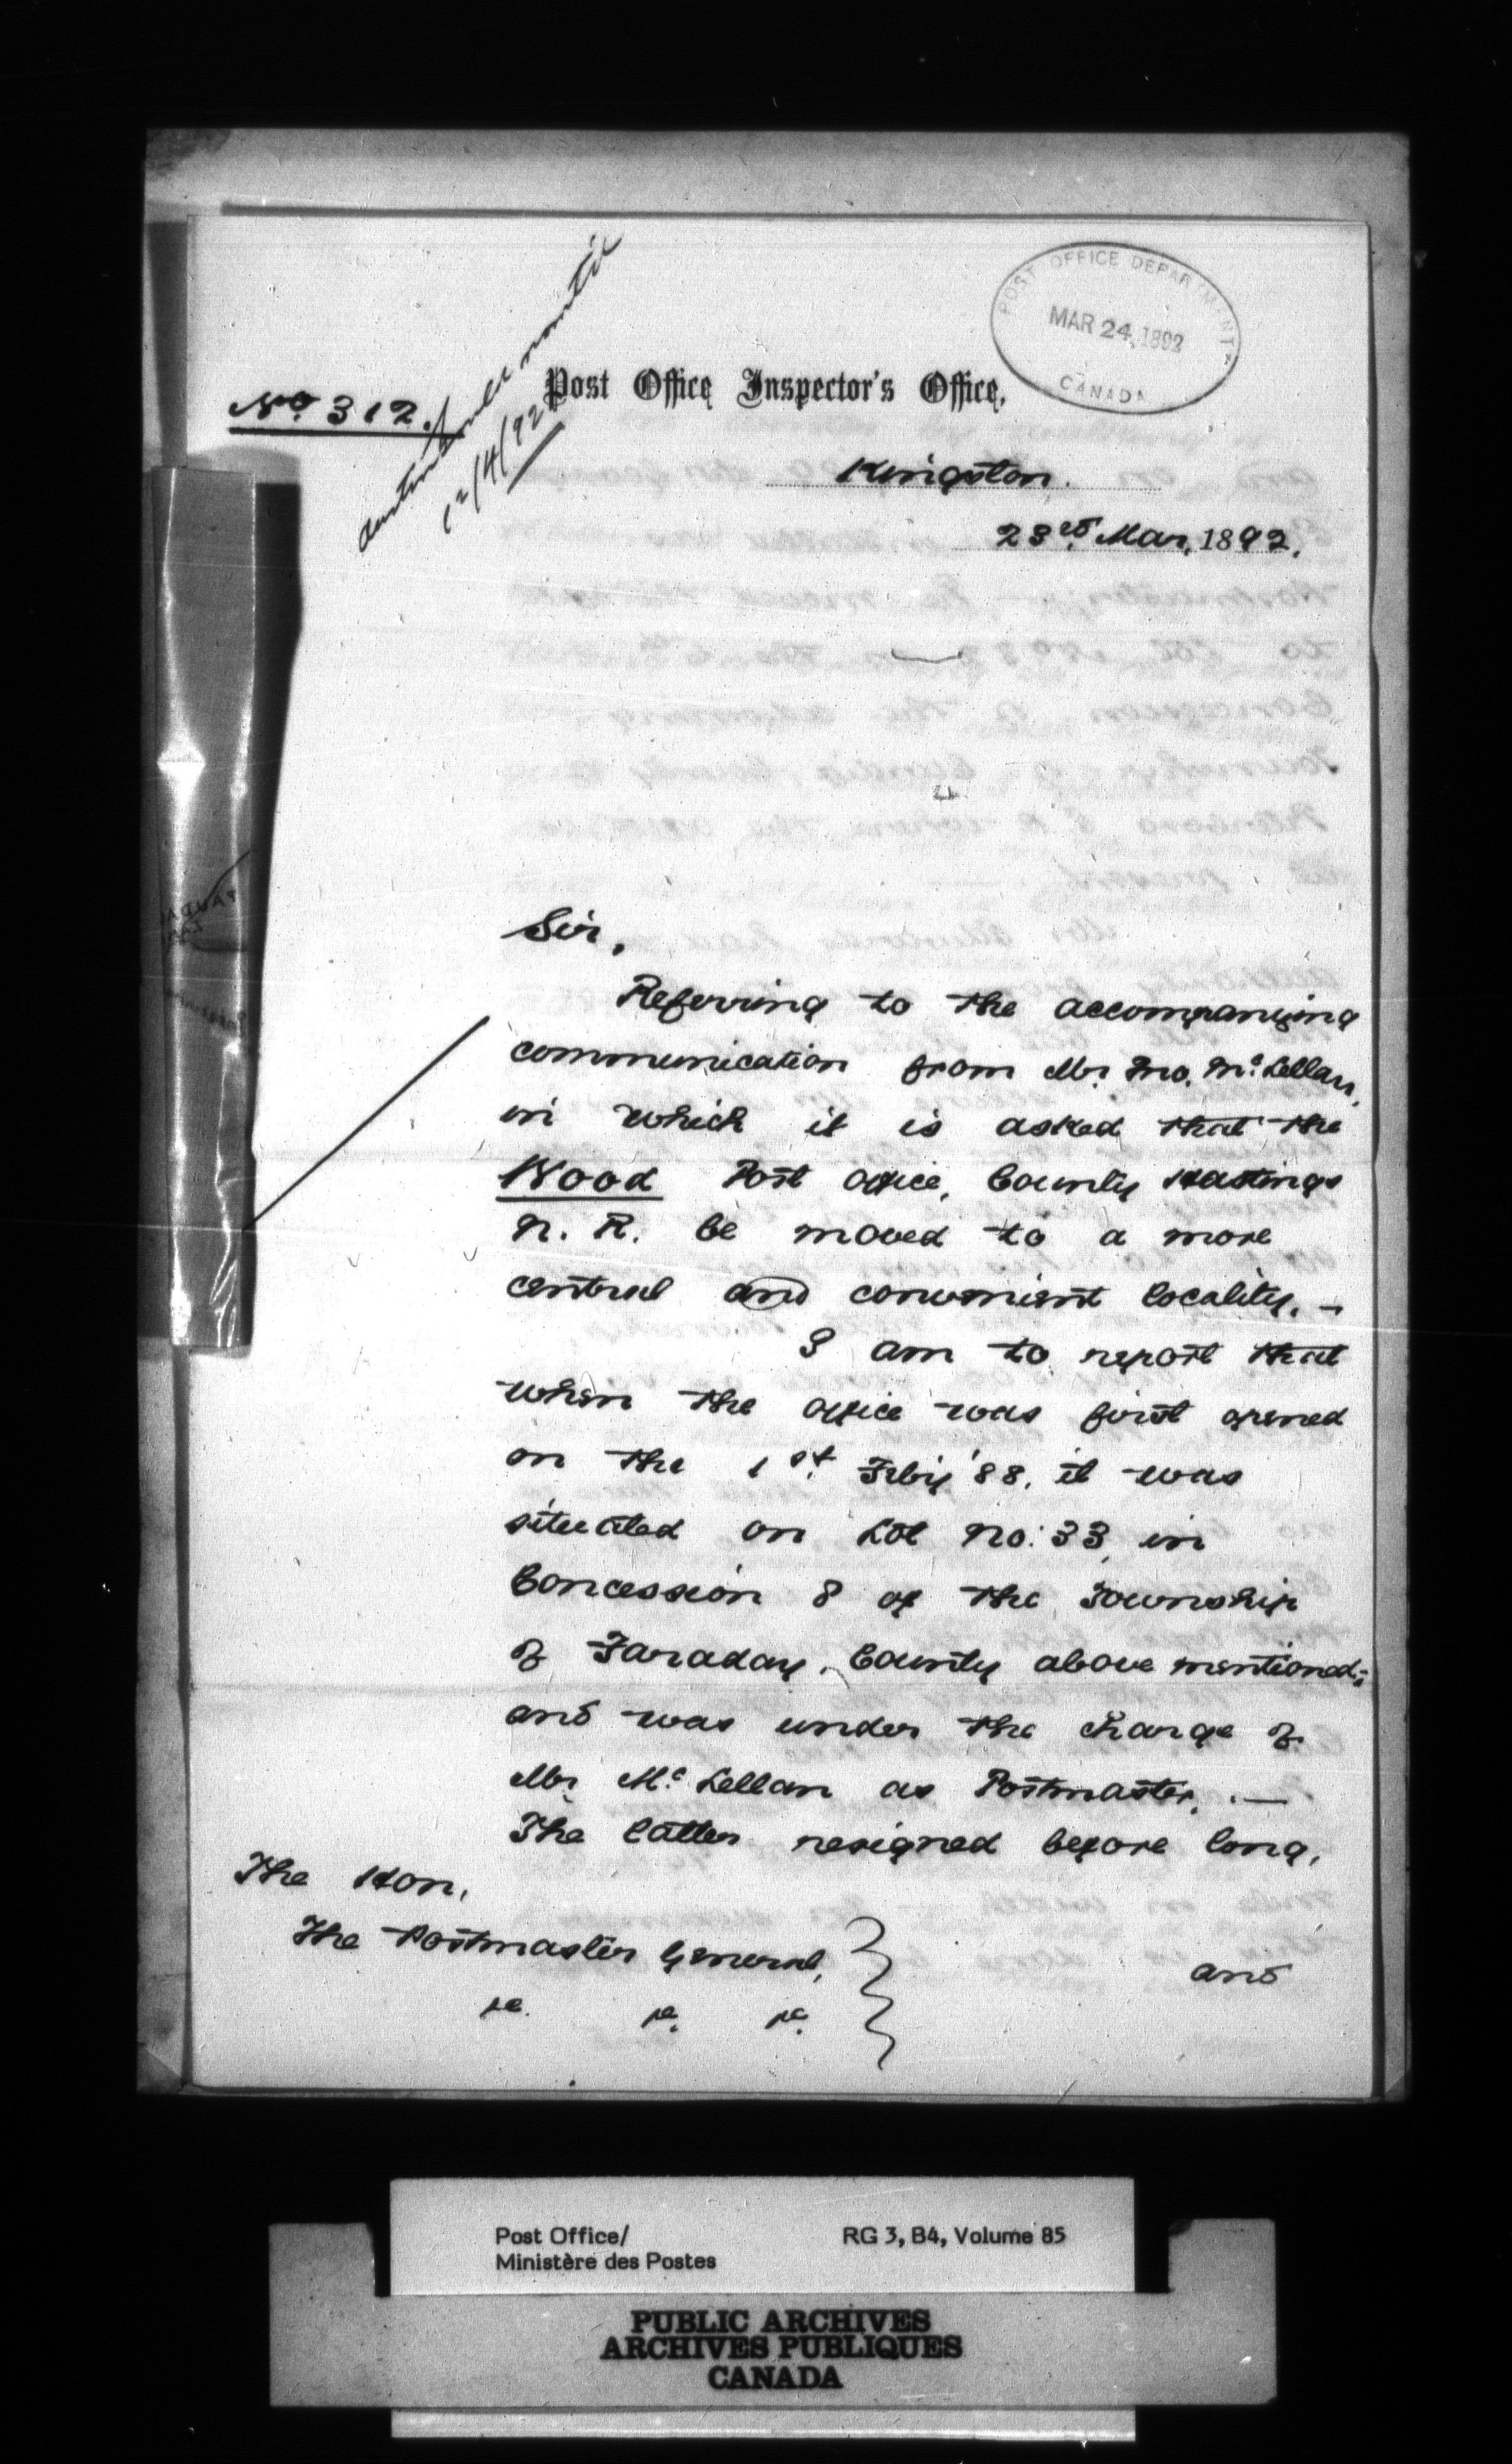 POST OFFICE DEPARTMENT
MAR 24, 1892
CANADA
No. 312.
12/4/92
Post Office Inspector's Office,
Kingston.
23rd. Mar, 1892.
Sir,
Referring to the accompanying
communication from Mr. Jno. McLellan,
in which it is asked that the
Wood Post Office, County Hastings
N. R. be moved to a more
central and convenient locality. —
I am to report that
when the office was first opened
on the 1st. Feby '88, it was
situated on Lot No: 33, in
Concession 8 of the Township
of Faraday, County above mentioned;
and was under the charge of
Mr. McLellan as Postmaster. —
The latter resigned before long,
The Hon,
The Postmaster General,
&c. &c. &c.
and
Post Office/
Ministère des Postes
RG 3, B4, Volume 85
PUBLIC ARCHIVES
ARCHIVES PUBLIQUES
CANADA